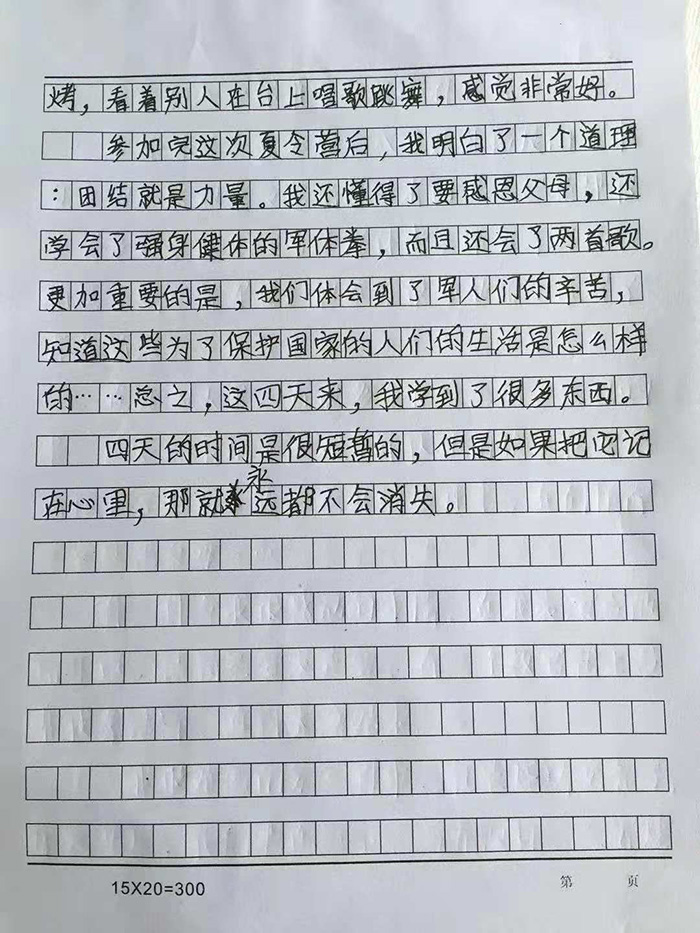 烤，看着别人在台上唱歌跳舞，感觉非常好。
参加完这次夏令营后，我明白了一个道理
：团结就是力量。我还懂得了要感恩父母，还
学会了强身健体的军体拳，而且还会了两首歌。
更加重要的是，我们体会到了军人们的辛苦，
知道这些为了保护国家的人们的生活是怎么样
的……总之，这四天来，我学到了很多东西。
四天的时间是很短暂的，但是如果把它记
在心里，那就永远都不会消失。
15X20=300
第 页